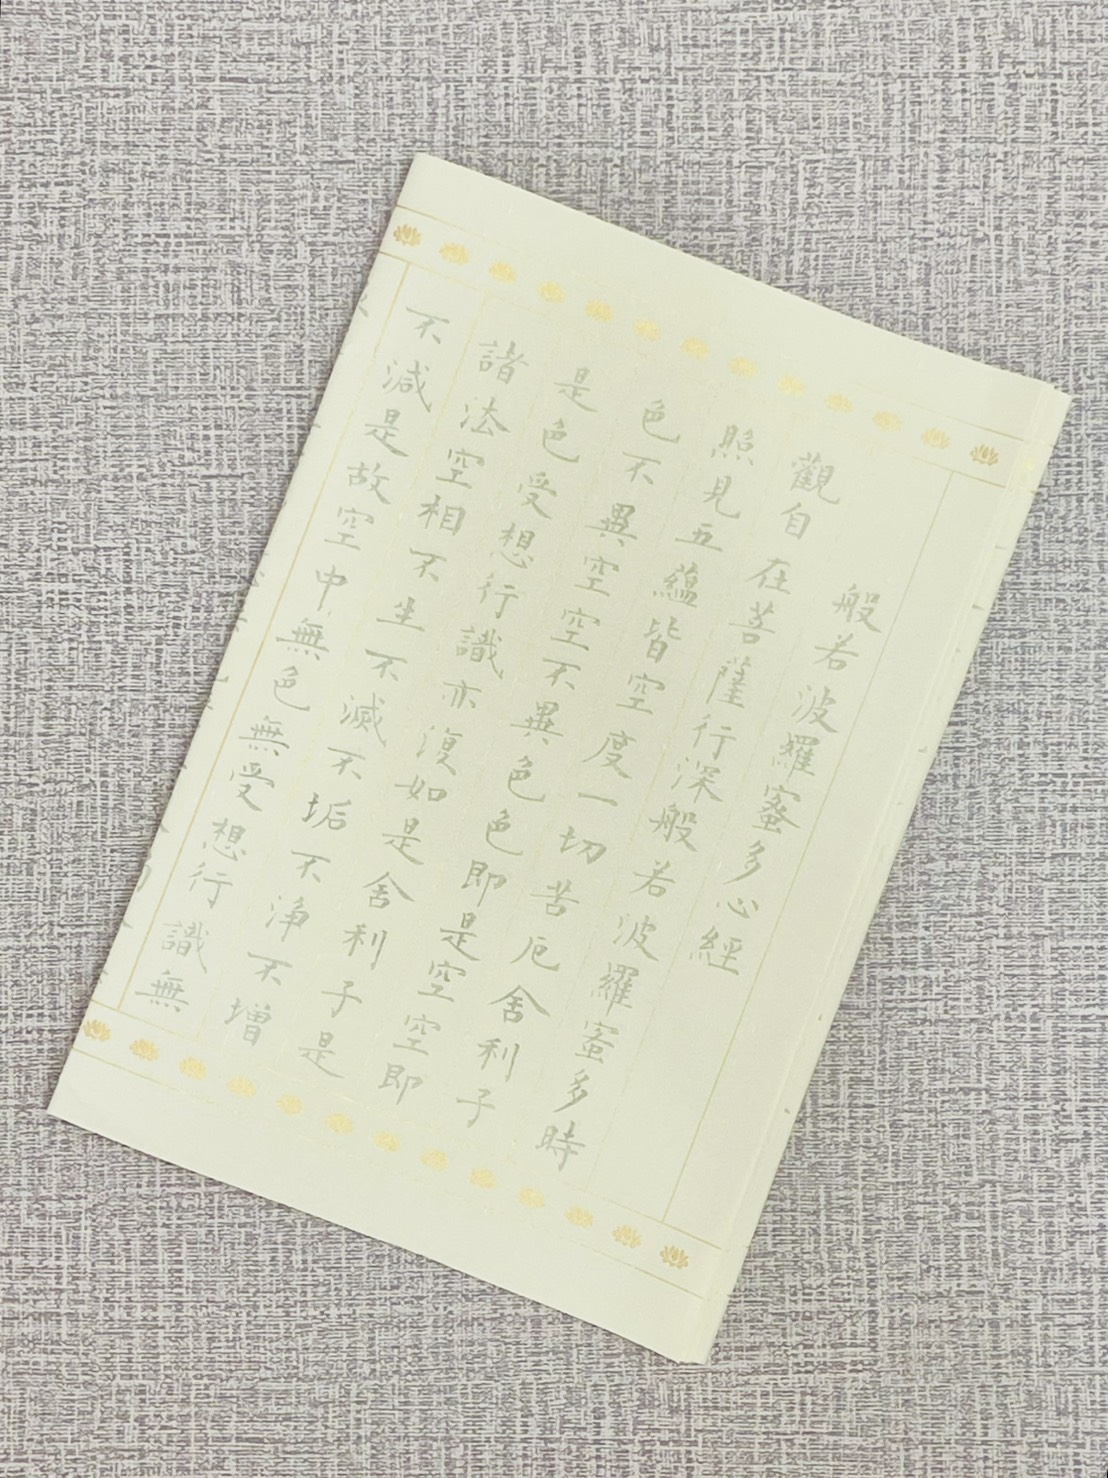 般若波羅蜜多心經
觀自在菩薩行深般若波羅蜜多時
照見五蘊皆空度一切苦厄舍利子
色不異空空不異色色即是空空即
是色受想行識亦復如是舍利子是
諸法空相不生不滅不垢不淨不增
不減是故空中無色無受想行識無